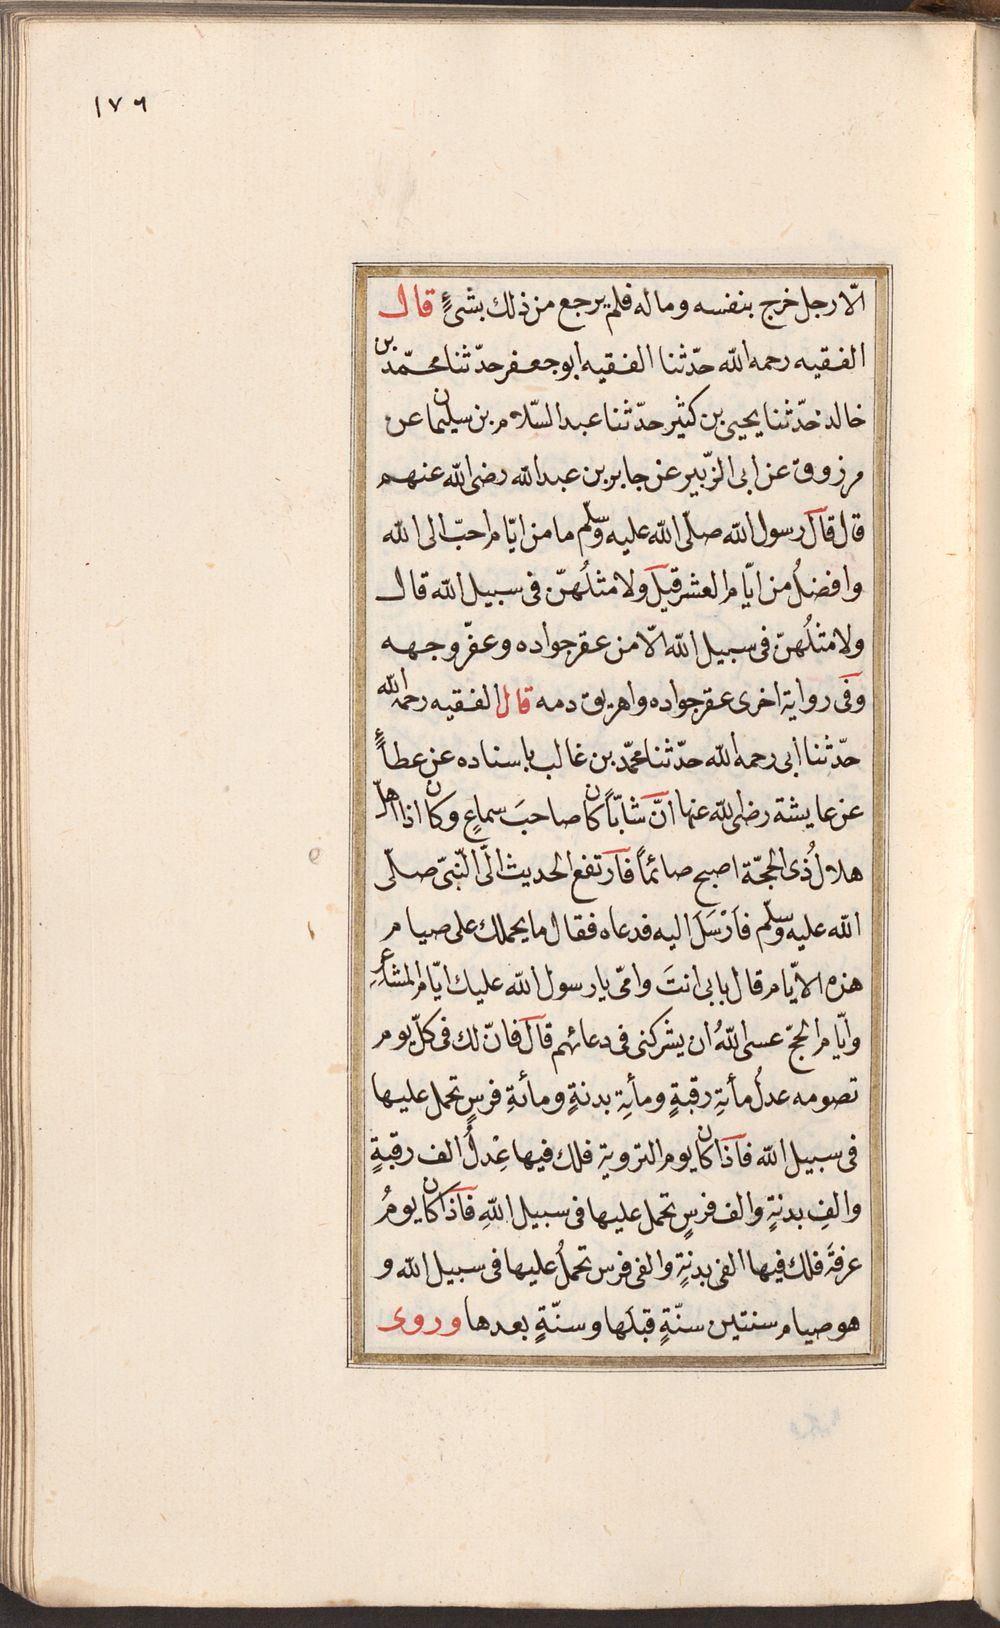 ١٧٦
الّا رجل خرج بنفسه وماله فلم يرجع من ذلك بشئٍ قال
الفقيه رحمه الله حدّثنا الفقيه ابو جعفر حدّثنا محمّد بن
خالد حدّثنا يحيى بن كثير حدّثنا عبد السّلام بن سليمان عن
مرزوق عن ابى الزّبير عن جابر بن عبد الله رضى الله عنهم
قال قال رسول الله صلّى الله عليه وسلّم ما من ايّام احبّ الى الله
وافضلُ من ايّام العشر قيل ولا مثلُهنّ فى سبيل الله قال
ولا مثلُهنّ فى سبيل الله الّا من عقر جواده وعفّر وجهه
وفى رواية اخرى عقر جواده واهريق دمه قال الفقيه رحمه الله
حدّثنا أبى رحمه الله حدّثنا محمّد بن غالب باسناده عن عطاءٍ
عن عايشة رضى الله عنها انّ شابّاً كان صاحبَ سماعٍ وكان اذا هلّ
هلالُ ذى الحجّة اصبح صائماً فارتفع الحديث الى النّبىّ صلّى
الله عليه وسلّم فاَرْسَلَ اليه فدعاه فقال ما يحملك على صيام
هذه الايّام قال بابى انتَ وامّى يا رسول الله عليك ايّام المشاعرِ
وايّام الحجّ عسى اللهُ ان يشركنى فى دعائهم قال فانّ لك فى كلّ يوم
تصومه عدلُ مأيةِ رقبةٍ ومأيةِ بدنةٍ ومأئةِ فرسٍ تحمل عليها
فى سبيل الله فاذا كان يوم التروية فلك فيها عِدلُ الف رقبةٍ
والفِ بدنةٍ والف فرسٍ تحمل عليها فى سبيل اللهِ فاذا كان يومُ
عرفةَ فلك فيها الفى بدنةٍ والفى فرس تحملُ عليها فى سبيل الله و
هو صيام سنتين سنّةٍ قبلَها وسنّةٍ بعدها وروى